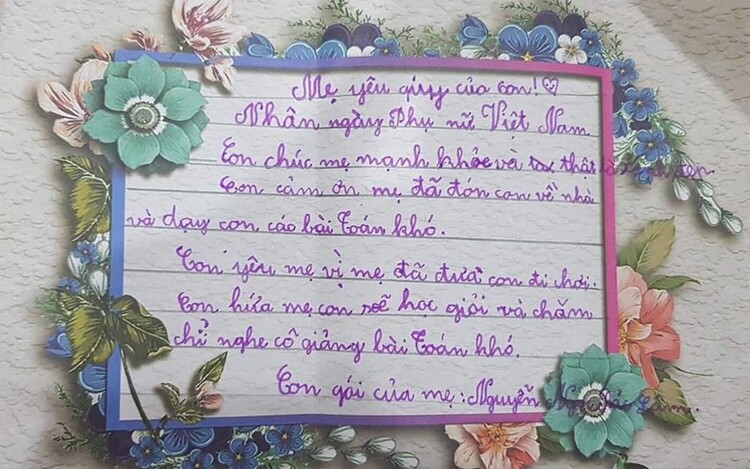 Mẹ yêu quý của con! ♡
Nhân ngày Phụ nữ Việt Nam
Con chúc mẹ mạnh khỏe và thật là xinh đẹp.
Con cảm ơn mẹ đã đón con về nhà
và dạy con cáo bài Toán khó.
Con yêu mẹ vì mẹ đã đưa con đi chơi.
Con hứa mẹ con sẽ học giỏi và chăm
chỉ nghe cô giảng bài Toán khó.
Con gái của mẹ : Nguyễn